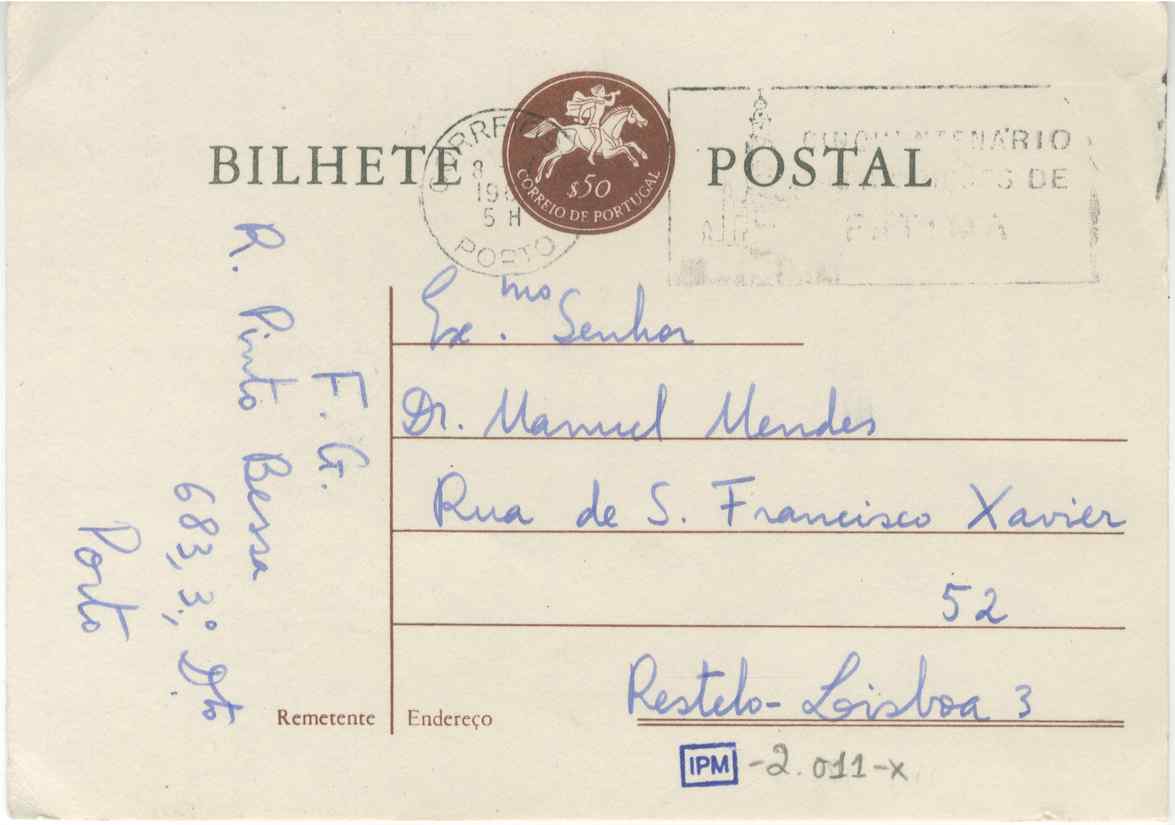 BILHETE POSTAL
CORREIO DE PORTUGAL
$50
PORTO
5 H
CINQUENTENÁRIO
DE
FÁTIMA
Ex.mo Senhor
Dr. Manuel Mendes
Rua de S. Francisco Xavier
52
Restelo - Lisboa 3
F. G.
R. Pinto Bessa
683, 3.º Dto
Porto
Remetente
Endereço
IPM -2.011-x